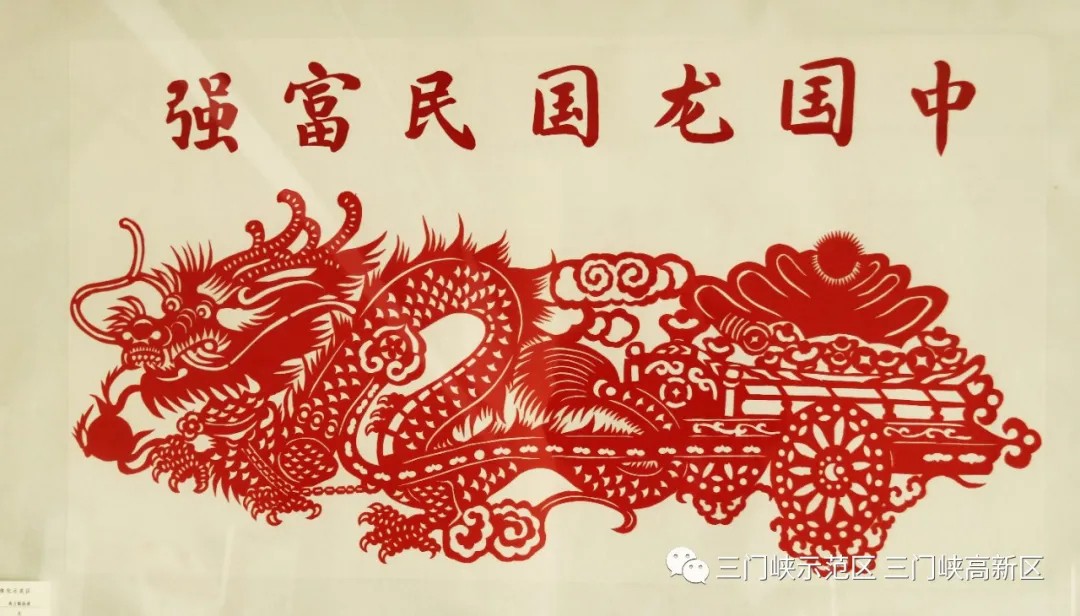 中国龙国民富强
三门峡示范区 三门峡高新区